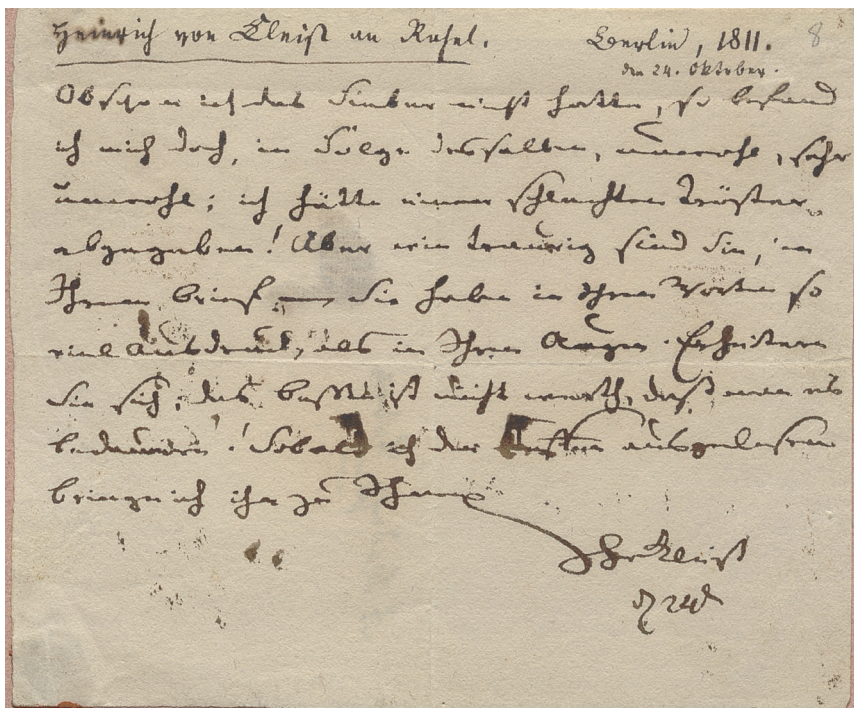 Heinrich von Kleist an Rahel. Berlin, 1811. 8
den 24. Oktober.
Obschon ich das Fieber nicht hatte, so befand
ich mich doch, in Folge desselben, unwohl, sehr
unwohl; ich hätte einen schlechten Tröster
abgegeben! Aber wie traurig sind Sie, in
Ihrem Brief. Sie haben in Ihren Worten so
viel Ausdruck, als in Ihren Augen. Erheitern
Sie sich; das Beste ist nicht werth, daß man es
bedauere! Sobald ich den ausgelesen
bringe ich ihn zu Ihnen
HvKleist
d 24t